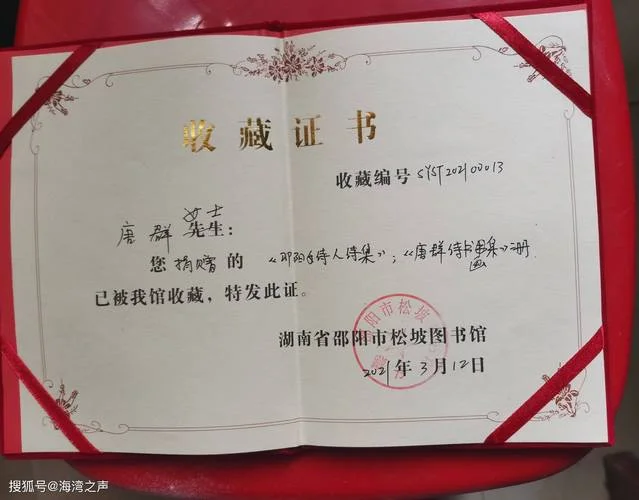 收藏证书
收藏编号 SYST20210013
女士
唐群 先生:
您 捐赠 的 《邵阳诗人诗集》;《唐群诗书画集》册
已被我馆收藏，特发此证。
湖南省邵阳市松坡图书馆
2021年3月12日
邵阳市松坡
搜狐号@海湾之声